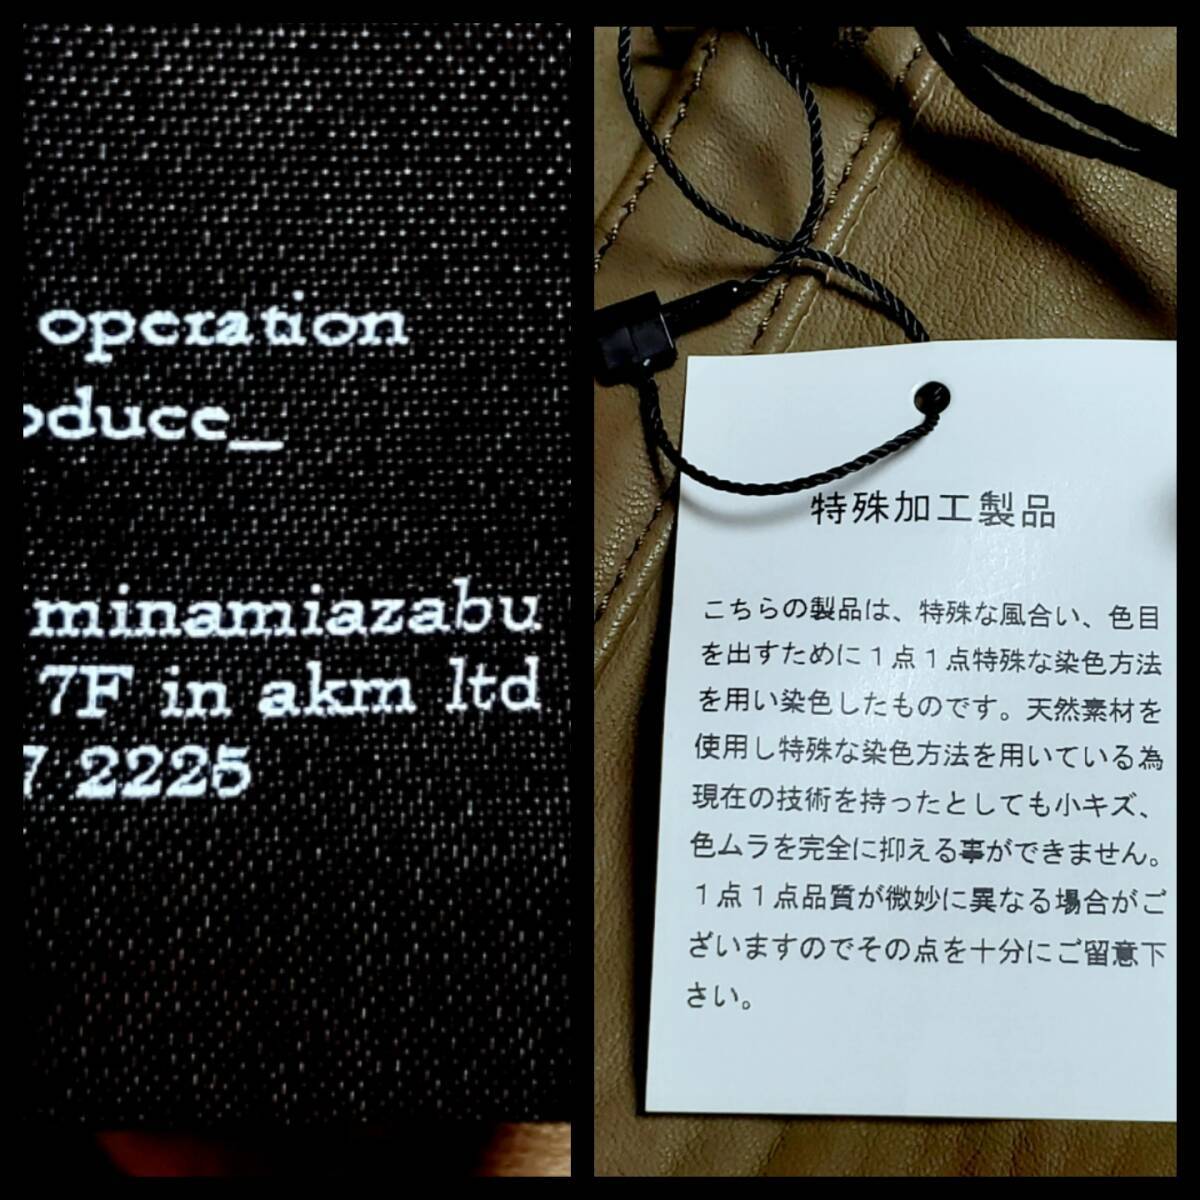 operation
oduce_
minamiazabu
7F in akm ltd
7 2225
特殊加工製品
こちらの製品は、特殊な風合い、色目
を出すために１点１点特殊な染色方法
を用い染色したものです。天然素材を
使用し特殊な染色方法を用いている為
現在の技術を持ったとしても小キズ、
色ムラを完全に抑える事ができません。
１点１点品質が微妙に異なる場合がご
ざいますのでその点を十分にご留意下
さい。